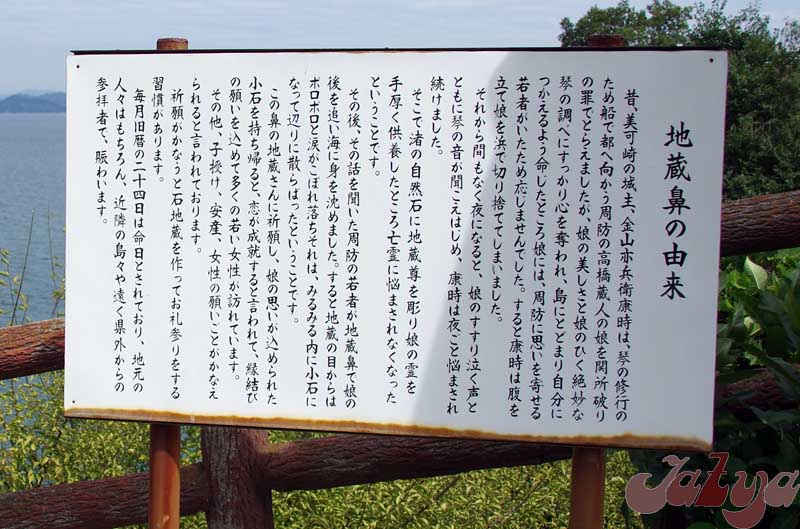 地蔵鼻の由来
昔、美可崎の城主、金山亦兵衛康時は、琴の修行の
ため船で都へ向かう周防の高橋蔵人の娘を関所破り
の罪でとらえましたが、娘の美しさと娘のひく絶妙な
琴の調べにすっかり心を奪われ、島にとどまり自分に
つかえるよう命じたところ娘には、周防に思いを寄せる
若者がいたため応じませんでした。すると康時は腹を
立て娘を浜で切り捨ててしまいました。
それから間もなく夜になると、娘のすすり泣く声と
ともに琴の音が聞こえはじめ、康時は夜ごと悩まされ
続けました。
そこで渚の自然石に地蔵尊を彫り娘の霊を
手厚く供養したところ亡霊に悩まされなくなった
ということです。
その後、その話を聞いた周防の若者が地蔵鼻で娘の
後を追い海に身を沈めました。すると地蔵の目からは
ポロポロと涙がこぼれ落ちそれは、みるみる内に小石に
なって辺りに散らばったということです。
この鼻の地蔵さんに祈願し、娘の思いが込められた
小石を持ち帰ると、恋が成就すると言われて、縁結び
の願いを込めて多くの若い女性が訪れています。
その他、子授け、安産、女性の願いごとがかなえ
られると言われております。
祈願がかなうと石地蔵を作ってお礼参りをする
習慣があります。
毎月旧暦の二十四日は命日とされており、地元の
人々はもちろん、近隣の島々や遠く県外からの
参拝者で、賑わいます。
JaLya